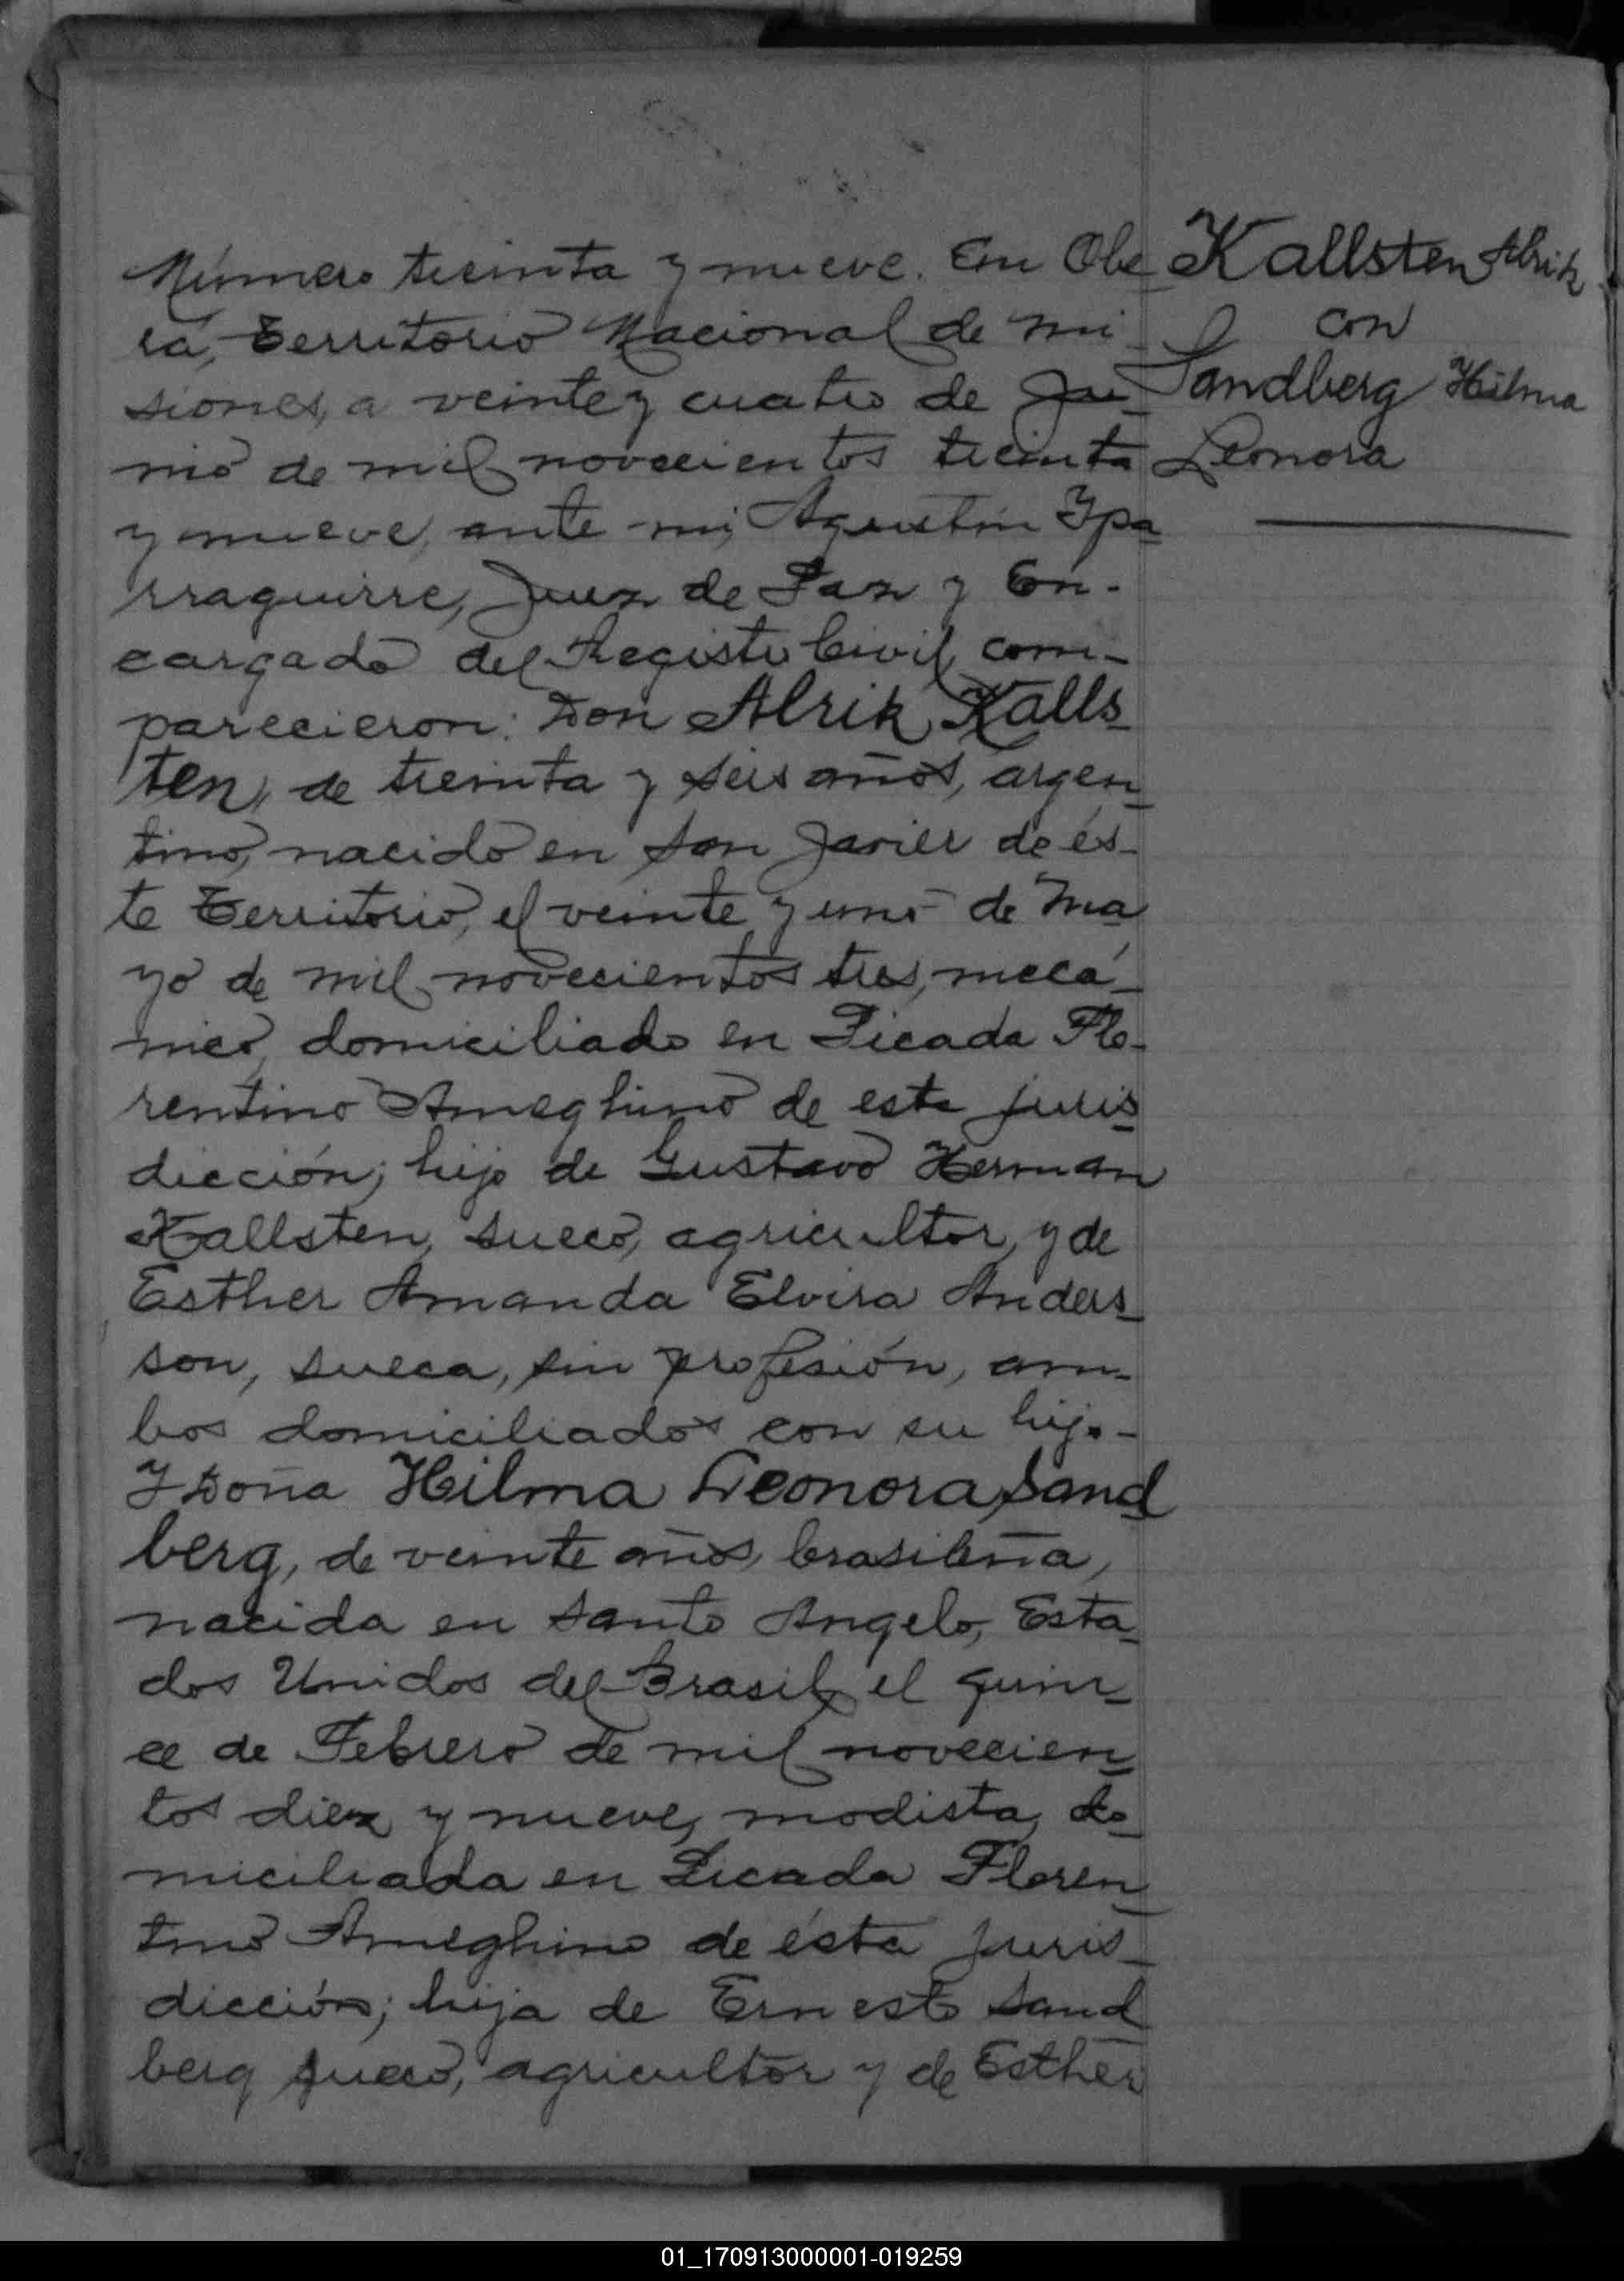 Número treinta y nueve. En Obe
rá, Territorio Nacional de Mi_
siones, a veinte y cuatro de Ju_
nio de mil novecientos treinta
y nueve, ante mi, Agustín Ypa_
rraguirre, Juez de Paz y En-
cargado del Registro Civil, com-
parecieron: Don Alrik Kalls_
ten, de treinta y seis años, argen_
tino, nacido en San Javier de és_
te Territorio, el veinte y uno de Ma_
yo de mil novecientos tres, mecá_
nico, domiciliado en Picada Flo_
rentino Ameghino de esta juris_
dicción; hijo de Gustavo Herman
Kallsten, sueco, agricultor, y de
Esther Amanda Elvira Anders_
son, sueca, sin profesión, am_
bos domiciliados con su hijo-
Y Doña Hilma Leonora Sand_
berg, de veinte años, brasileña,
nacida en Santo Angelo, Esta_
dos Unidos del Brasil, el quin_
ce de Febrero de mil novecien_
tos diez y nueve, modista, do_
miciliada en Picada Floren_
tino Ameghino de ésta juris_
dicción; hija de Ernesto Sand_
berg sueco, agricultor y de Esther
Kallsten Alrik
con
Sandberg Hilma
Leonora
01_170913000001-019259